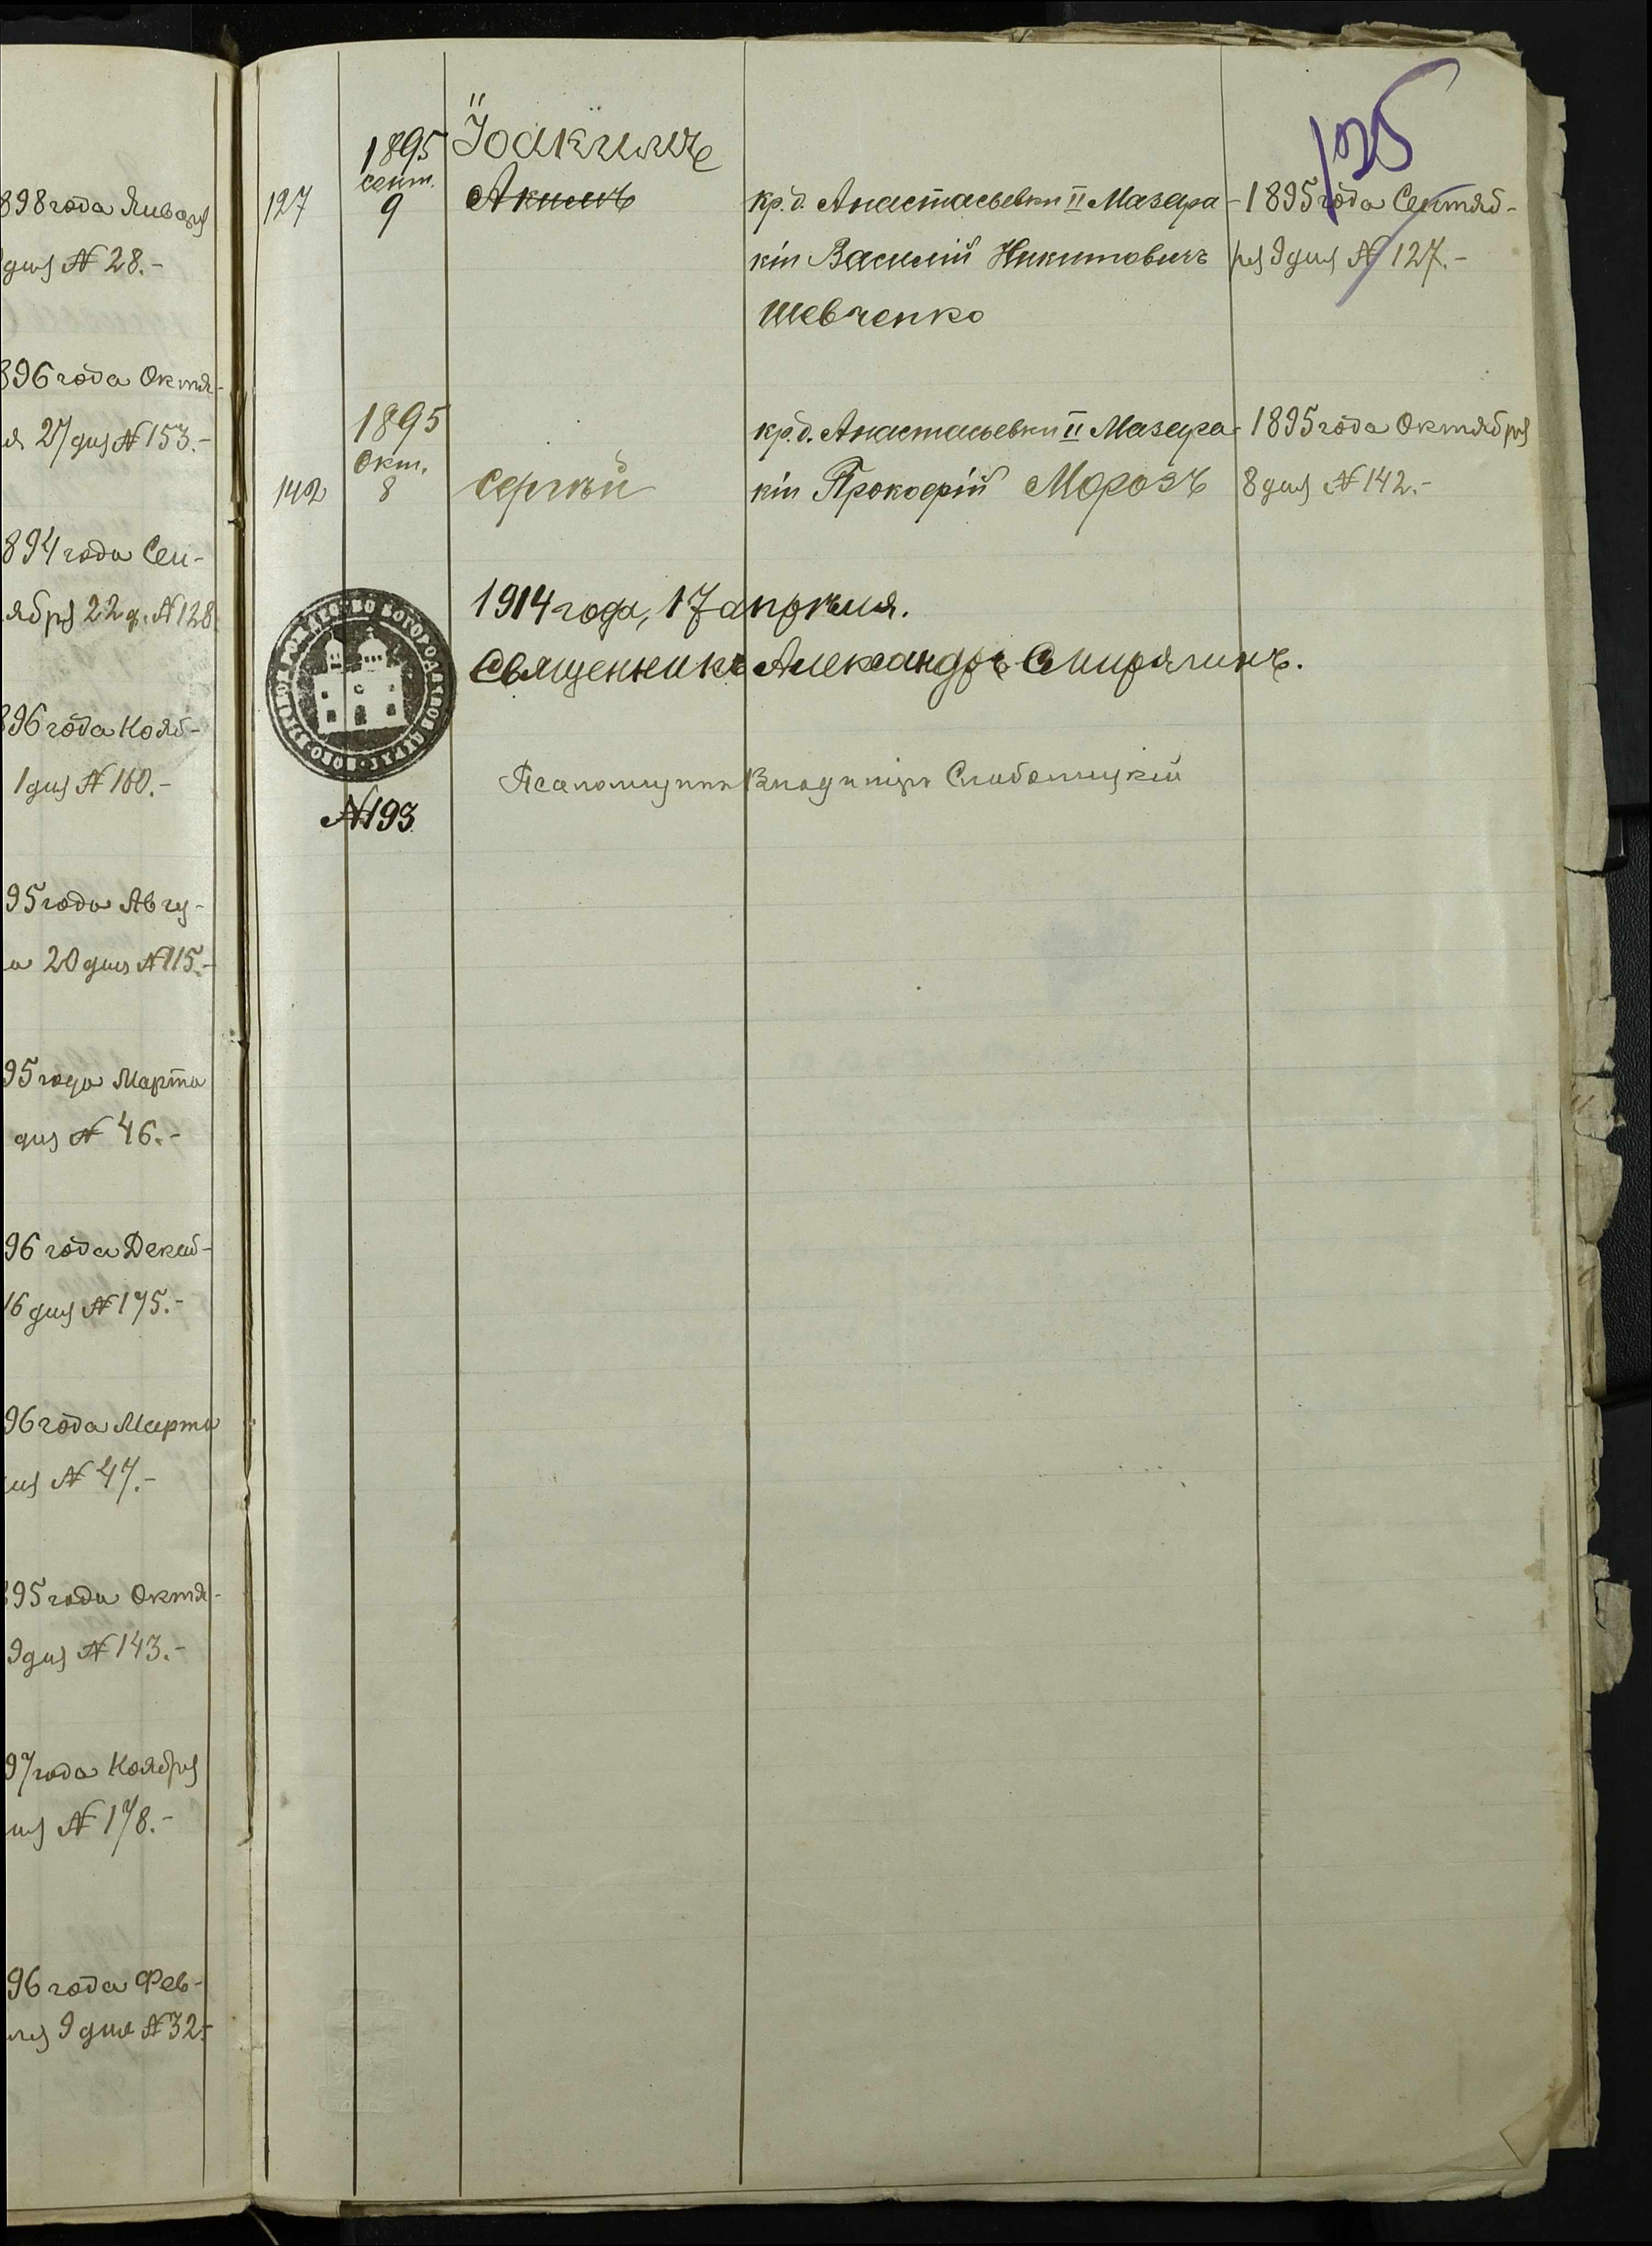 898 года Января
дня № 28.-
896 года Октя-
я 27 дня № 153.-
894 года Сен-
ября 22 д. № 128
896 года Нояб-
1 дня № 160.-
95 года Авгу-
а 20 дня № 115.-
95 года Марта
дня № 46.-
96 года Декаб-
16 дня № 175.-
96 года Марта
ня № 47.-
895 года Октя-
9 дня № 143.-
97 года Ноября
ня № 178.-
96 года Фев-
ля 9 дня № 32.-
125
1895 Іоакимъ
сент.
127 9 Акимъ кр. д. Анастасьевки II Мазара- 1895 года Сентяб-
кіи Василій Никитовичъ ря 9 дня № 127.-
Шевченко
1895 кр. д. Анастасьевки II Мазара- 1895 года Октября
Окт.
142 8 Сергѣй кіи Прокофій Морозъ 8 дня № 142.-
1914 года, 17 апрѣля.
Священникъ Александръ
Псаломщикъ Владиміръ
№ 193